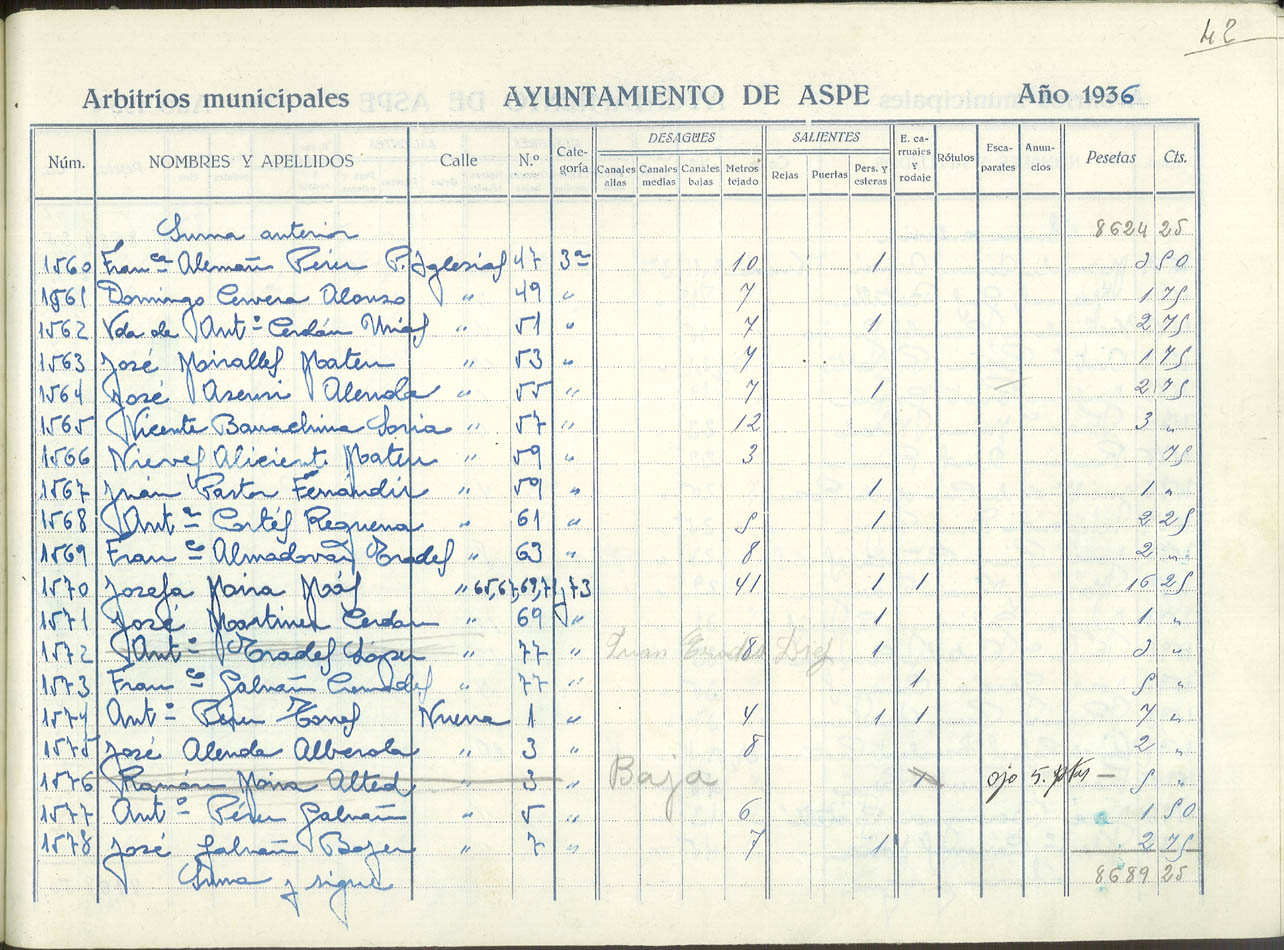 42
Arbitrios municipales AYUNTAMIENTO DE ASPE Año 1936
Núm. NOMBRES Y APELLIDOS Calle N.º Categoría DESAGÜES Canales altas Canales medias Canales bajas Metros tejado SALIENTES Rejas Puertas Pers. y esteras E. carruajes y rodaje Rótulos Escaparates Anuncios Pesetas Cts.
Suma anterior 8624 25
1560 Fran.ca Alemañ Pérez P. Iglesias 47 3ª 10 1 3 50
1561 Domingo Cervera Alonso " 49 " 7 1 75
1562 Vda de Ant.º Cerdán Urias " 51 " 7 1 2 75
1563 José Miralles Mateu " 53 " 7 1 75
1564 José Asensi Alenda " 55 " 7 1 2 75
1565 Vicente Barrachina Soria " 57 " 12 3 "
1566 Nieves Aliciente Mateu " 59 " 3 75
1567 Juán Pastor Fernández " 59 " 1 1 "
1568 Ant.ª Cortés Requena " 61 " 5 1 2 25
1569 Fran.co Almodovar Prades " 63 " 8 2 "
1570 Josefa Mira Más " 65, 67, 69, 71 y 73 41 1 1 16 25
1571 José Martinez Cerdán " 69 " 1 1 "
1572 Ant.º Prades López " 77 " Juan 8 1 3 "
1573 Fran.co Galvañ Cremades " 77 " 1 5 "
1574 Ant.º Pérez Torres Nueva 1 " 4 1 1 7 "
1575 José Alenda Alberola " 3 " 8 2 "
1576 Ramón Mira Alted " 3 " Baja 1 ojo 5. ptas — 5 "
1577 Ant.º Pérez Galvañ " 5 " 6 1 50
1578 José Galvañ " 7 " 7 1 2 75
Suma y sigue 8689 25